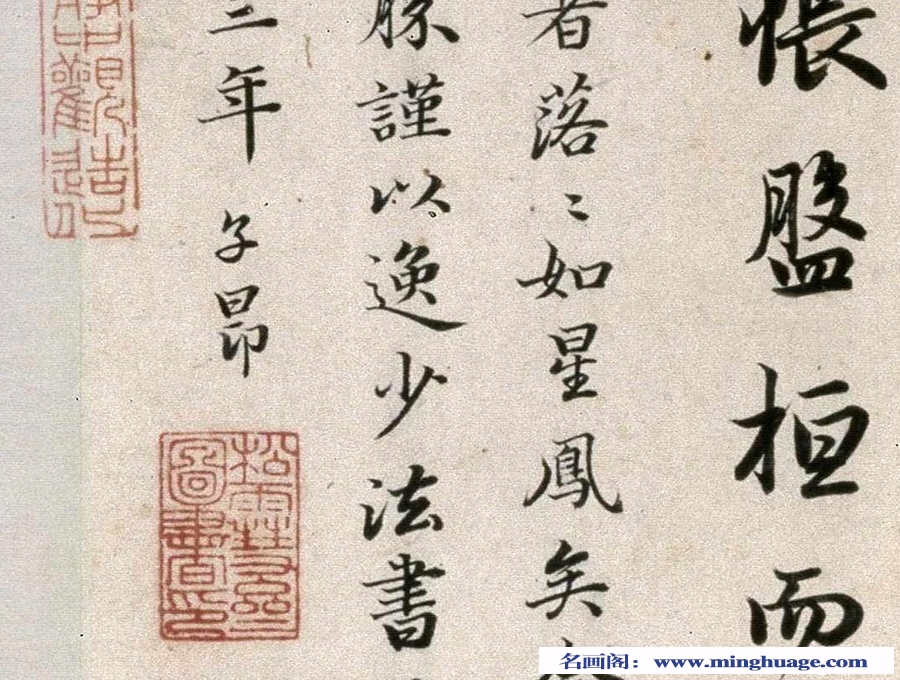 悵盤桓而
者落〻如星鳳矣
謹以逸少法書
年 子昂
松雪齋
圖書印
名画阁：www.minghuage.com